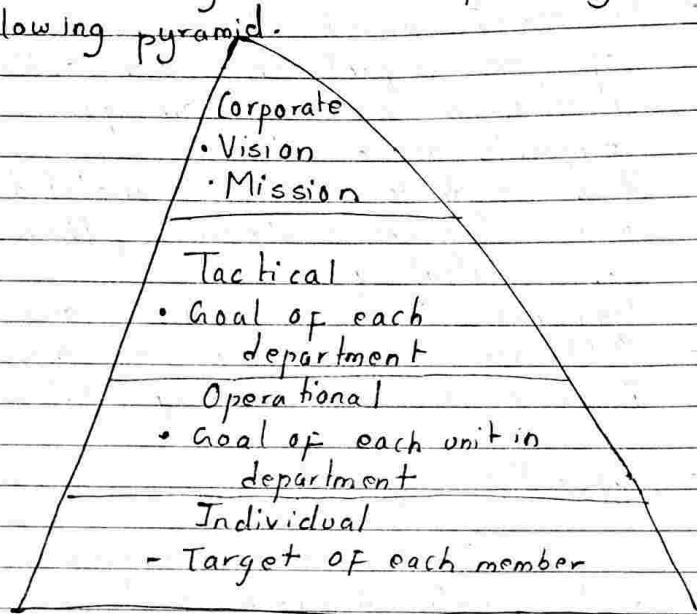 lowing pyramid.
Corporate
• Vision
• Mission
Tactical
• Goal of each
department
Operational
• Goal of each unit in
department
Individual
- Target of each member